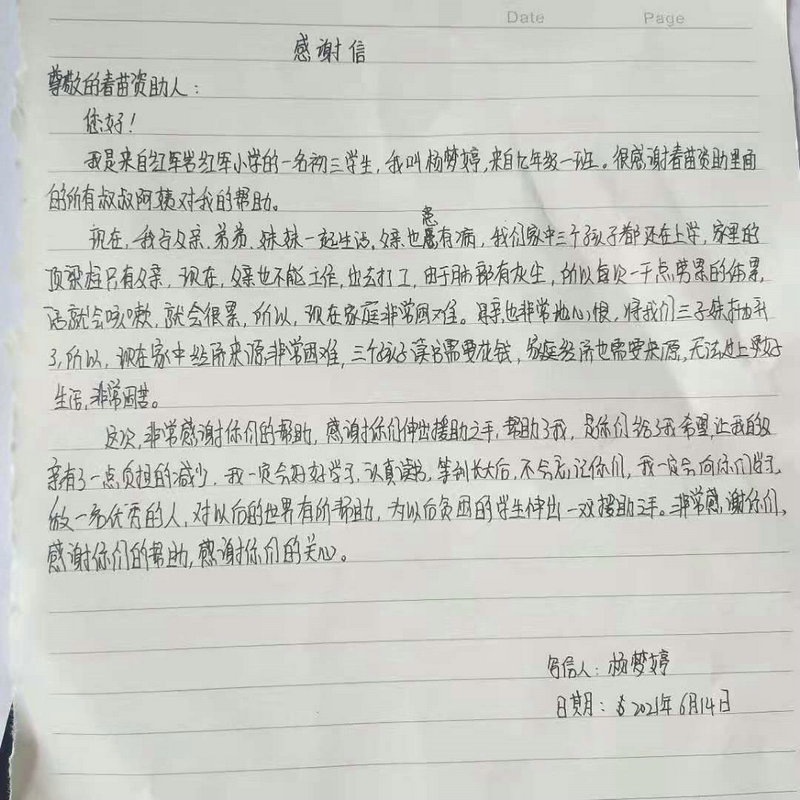 Date Page
感谢信
尊敬的春苗资助人：
您好！
我是来自红军岩红军小学的一名初三学生，我叫杨梦婷，来自九年级一班。很感谢春苗资助里面
的所有叔叔阿姨对我的帮助。
现在，我与父亲、弟弟、妹妹一起生活，父亲也患有病，我们家中三个孩子都还在上学，家里的
顶梁柱只有父亲，现在，父亲也不能工作，出去打工，由于肺部有灰尘，所以每次一干点劳累的体累，
活就会咳嗽，就会很累，所以，现在家庭非常困难。母亲也非常地心恨，将我们三子妹抛弃
了，所以，现在家中经济来源非常困难，三个孩子读书需要花钱，家庭经济也需要来源，无法过上更好
生活，非常困苦。
这次，非常感谢你们的帮助，感谢你们伸出援助之手，帮助了我，是你们给了我希望，让我的父
亲有了一点负担的减少，我一定会好好学习，认真读书，等到长大后，不会忘记你们，我一定会向你们学习，
做一名优秀的人，对以后的世界有所帮助，为以后贫困的学生伸出一双援助之手。非常感谢你们，
感谢你们的帮助，感谢你们的关心。
写信人：杨梦婷
日期：2021年6月14日